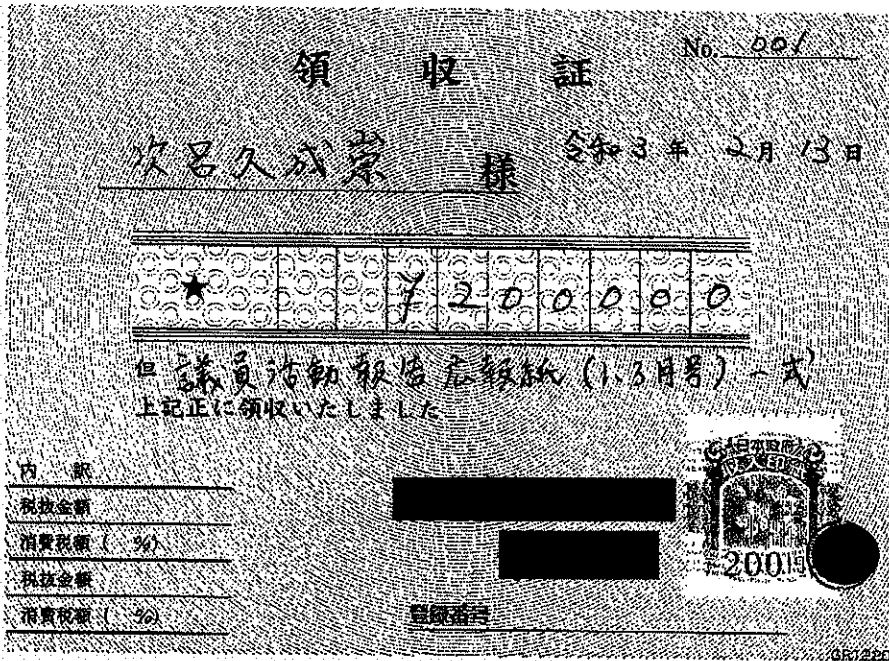 No. 001
領収証
次呂久成崇 様
令和3年 2月 13日
★ ¥200000
但 議員活動報告広報紙(1.3月号)一式
上記正に領収いたしました
内 訳
税抜金額
消費税額( %)
税抜金額
消費税額( %)
日本政府
収入印紙
200円
登録番号